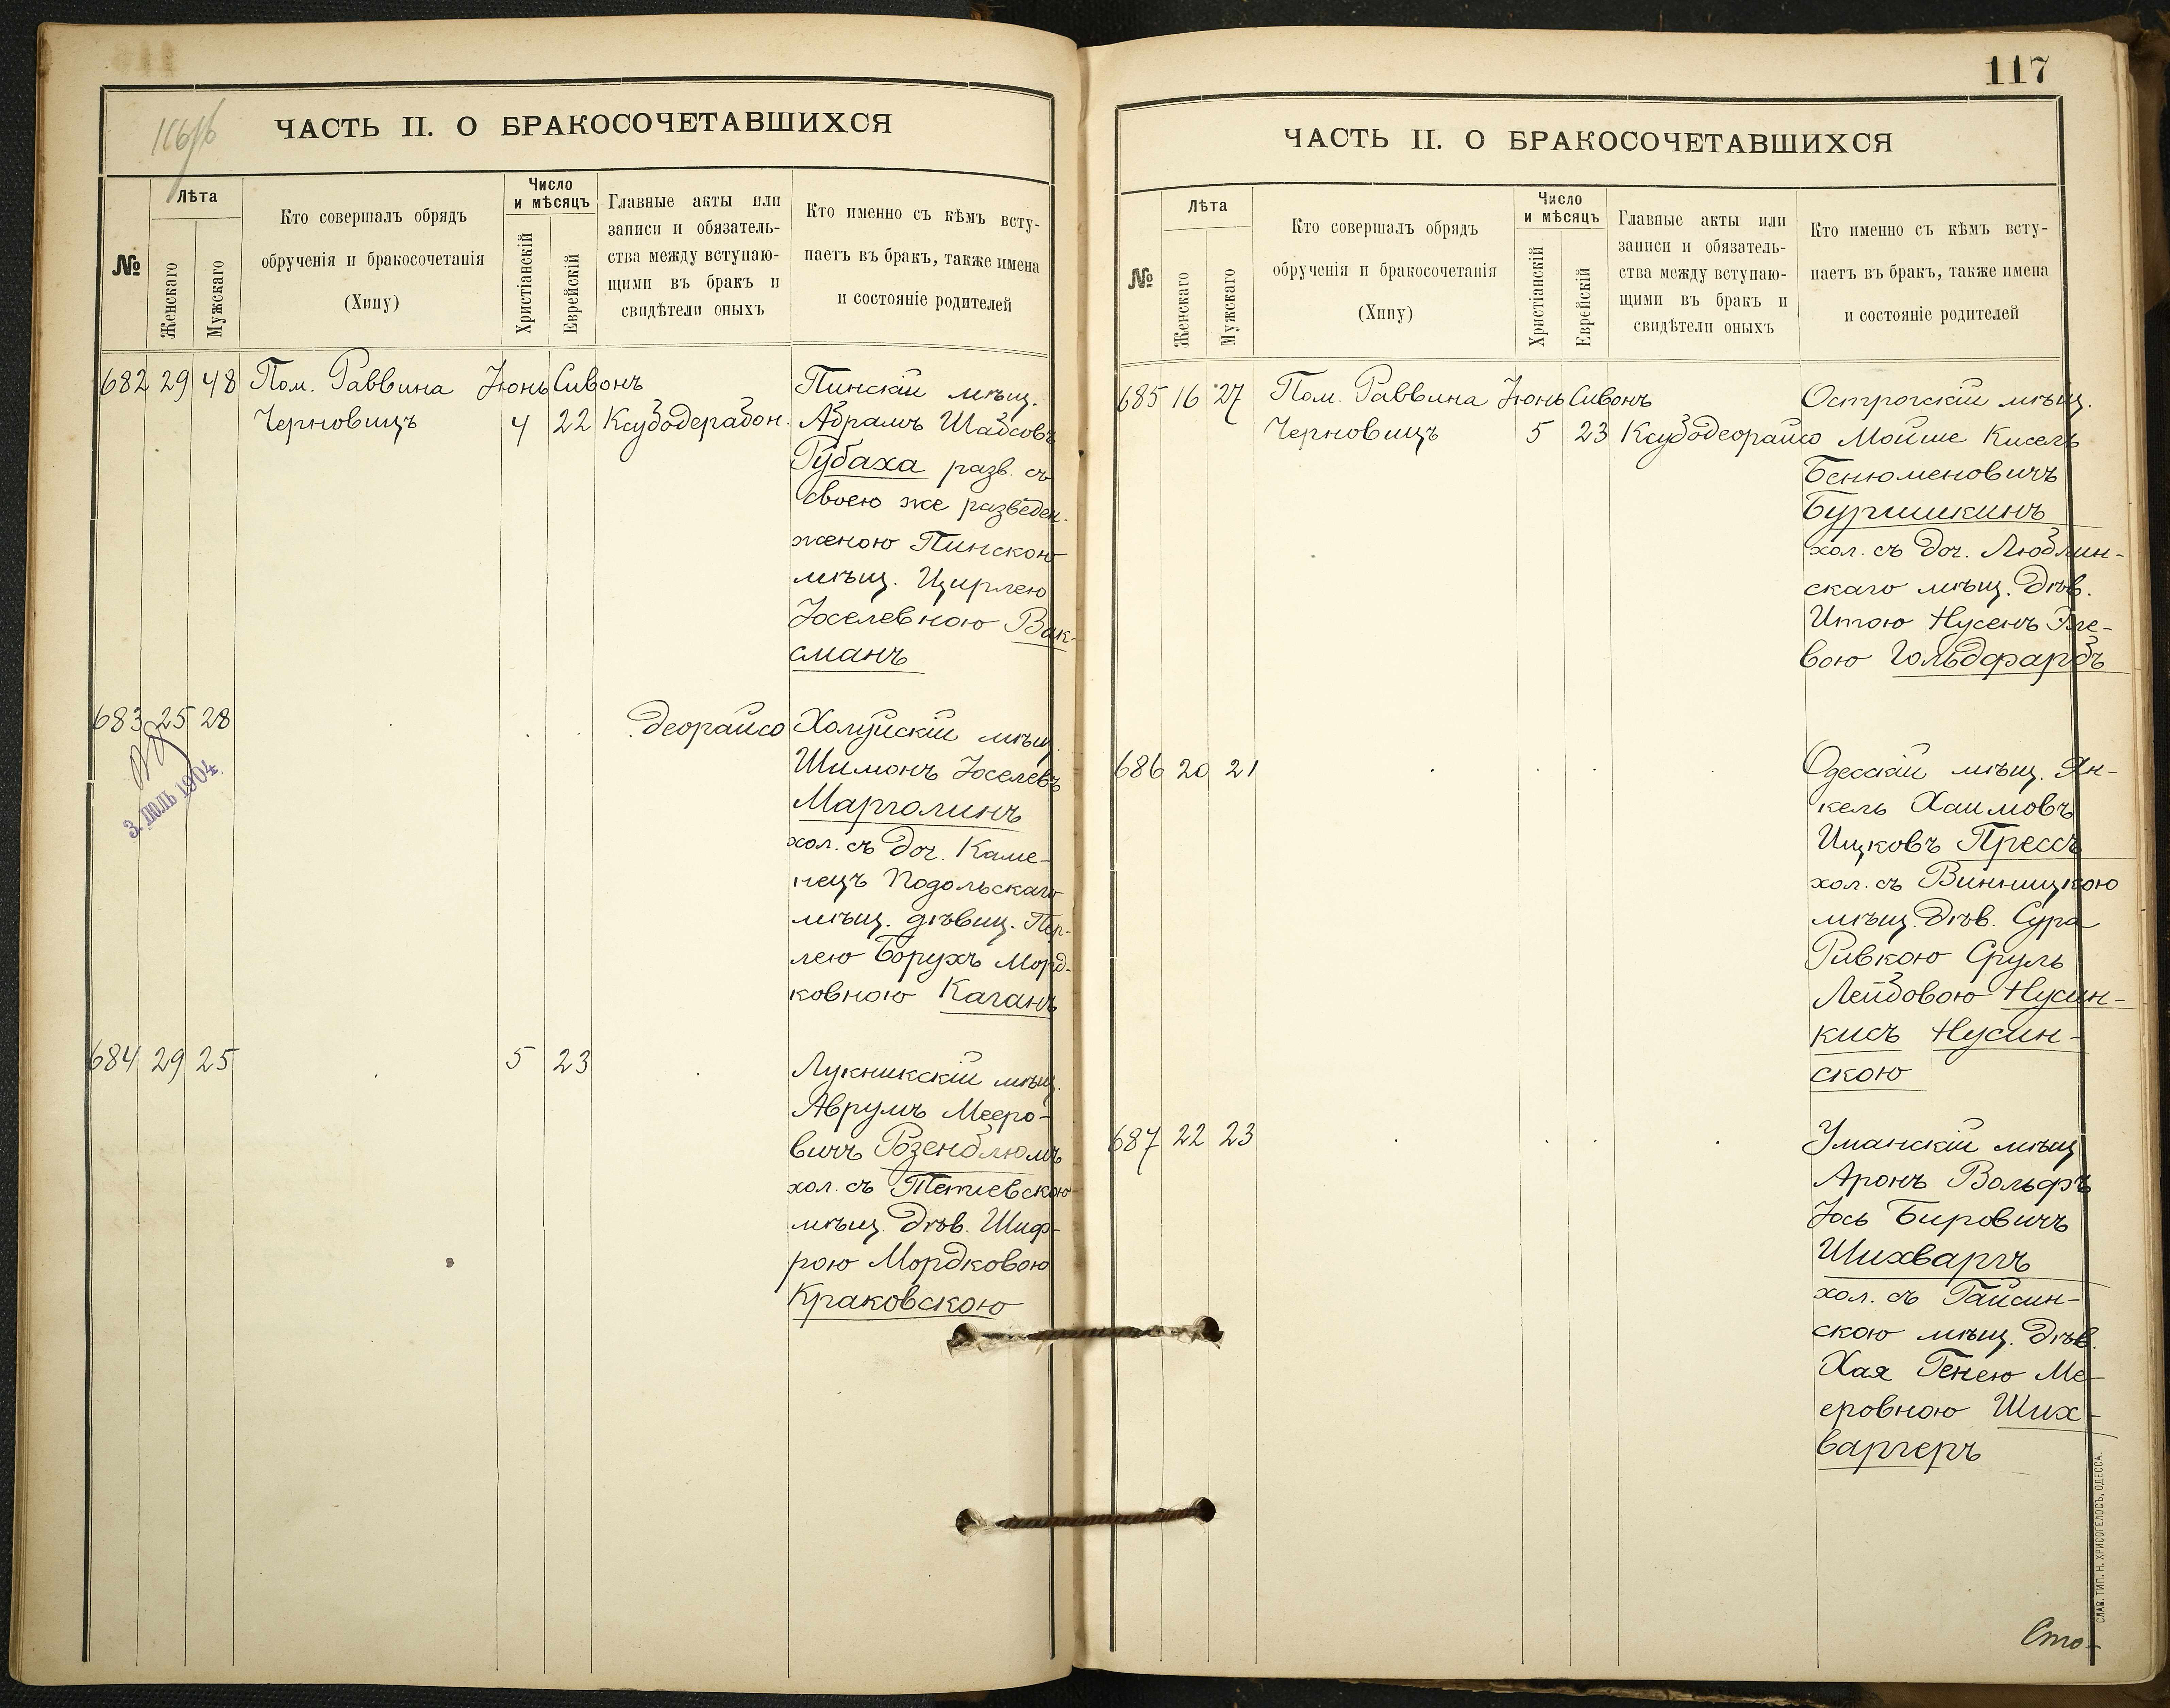 116/б
ЧАСТЬ II. О БРАКОСОЧЕТАВШИХСЯ
№
Лѣта
Женскаго
Мужскаго
Кто совершалъ обрядъ
обрученія и бракосочетанія
(Хипу)
Число
и мѣсяцъ
Христіанскій
Еврейскій
Главные акты или
записи и обязатель-
ства между вступаю-
щими въ бракъ и
свидѣтели оныхъ
Кто именно съ кѣмъ всту-
паетъ въ бракъ, также имена
и состояніе родителей
682 29 48 Пом. Раввина Іюнь Сивонъ Пинскій мѣщ.
Черновицъ 4 22 Ксубодерабон. Абрамъ Шабсовъ
Губаха разв. съ
своею же разведен.
женою Пинскою
мѣщ. Цирлею
Іоселевною Вак-
сманъ
683 25 28 деорайсо Холуйскій мѣщ.
3. ІЮЛЬ 1904.
Шимонъ Іоселевъ
Марголинъ
хол. съ доч. Каме-
нецъ Подольскаго
мѣщ. дѣвиц. Пер-
лею Борухъ Морд-
ковною Каганъ
684 29 25 5 23 Лукникскій мѣщ.
Аврумъ Мееро-
вичъ Розенблюмъ
хол. съ Тетіевскою
мѣщ. дѣв. Шиф-
рою Мордковою
Краковскою
117
ЧАСТЬ II. О БРАКОСОЧЕТАВШИХСЯ
№
Лѣта
Женскаго
Мужскаго
Кто совершалъ обрядъ
обрученія и бракосочетанія
(Хипу)
Число
и мѣсяцъ
Христіанскій
Еврейскій
Главные акты или
записи и обязатель-
ства между вступаю-
щими въ бракъ и
свидѣтели оныхъ
Кто именно съ кѣмъ всту-
паетъ въ бракъ, также имена
и состояніе родителей
685 16 27 Пом. Раввина Іюнь Сивонъ Острогскій мѣщ.
Черновицъ 5 23 Ксубодеорайсо Мойше Кисель
Бенюменовичъ
Буршикинъ
хол. съ доч. Люблин-
скаго мѣщ. дѣв.
Итою Нусенъ Эле-
вою Гольдфарбъ
686 20 21 Одесскій мѣщ. Ян-
кель Хаимовъ
Ицковъ Прессъ
хол. съ Винницкою
мѣщ. дѣв. Сура
Ривкою Сруль
Лейбовою Нусин-
кисъ Нусин-
скою
687 22 23 Уманскій мѣщ
Аронъ Вольфъ
Іось Бировичъ
Шихваргъ
хол. съ Гайсин-
скою мѣщ. дѣв.
Хая Генею Ме-
еровною Ших-
варгеръ
СЛАВ. ТИП. Н. ХРИСОГЕЛОСЪ, ОДЕССА.
Сто-